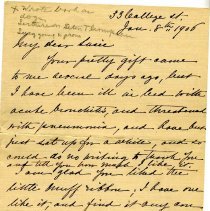 x Wrote book on
dogs
33 College St.
Jan. 8th, 1906
My dear Susie
Your pretty gift came
to me several days ago, but
I have been ill in bed with
acute bronchitis, and threatened
with pneumonia, and have but
just sat up for a while, and so
could do no writing to thank you
and tell you how much I like it.
I am glad you liked the
little muff ribbon. I have one
like it, and find it very con